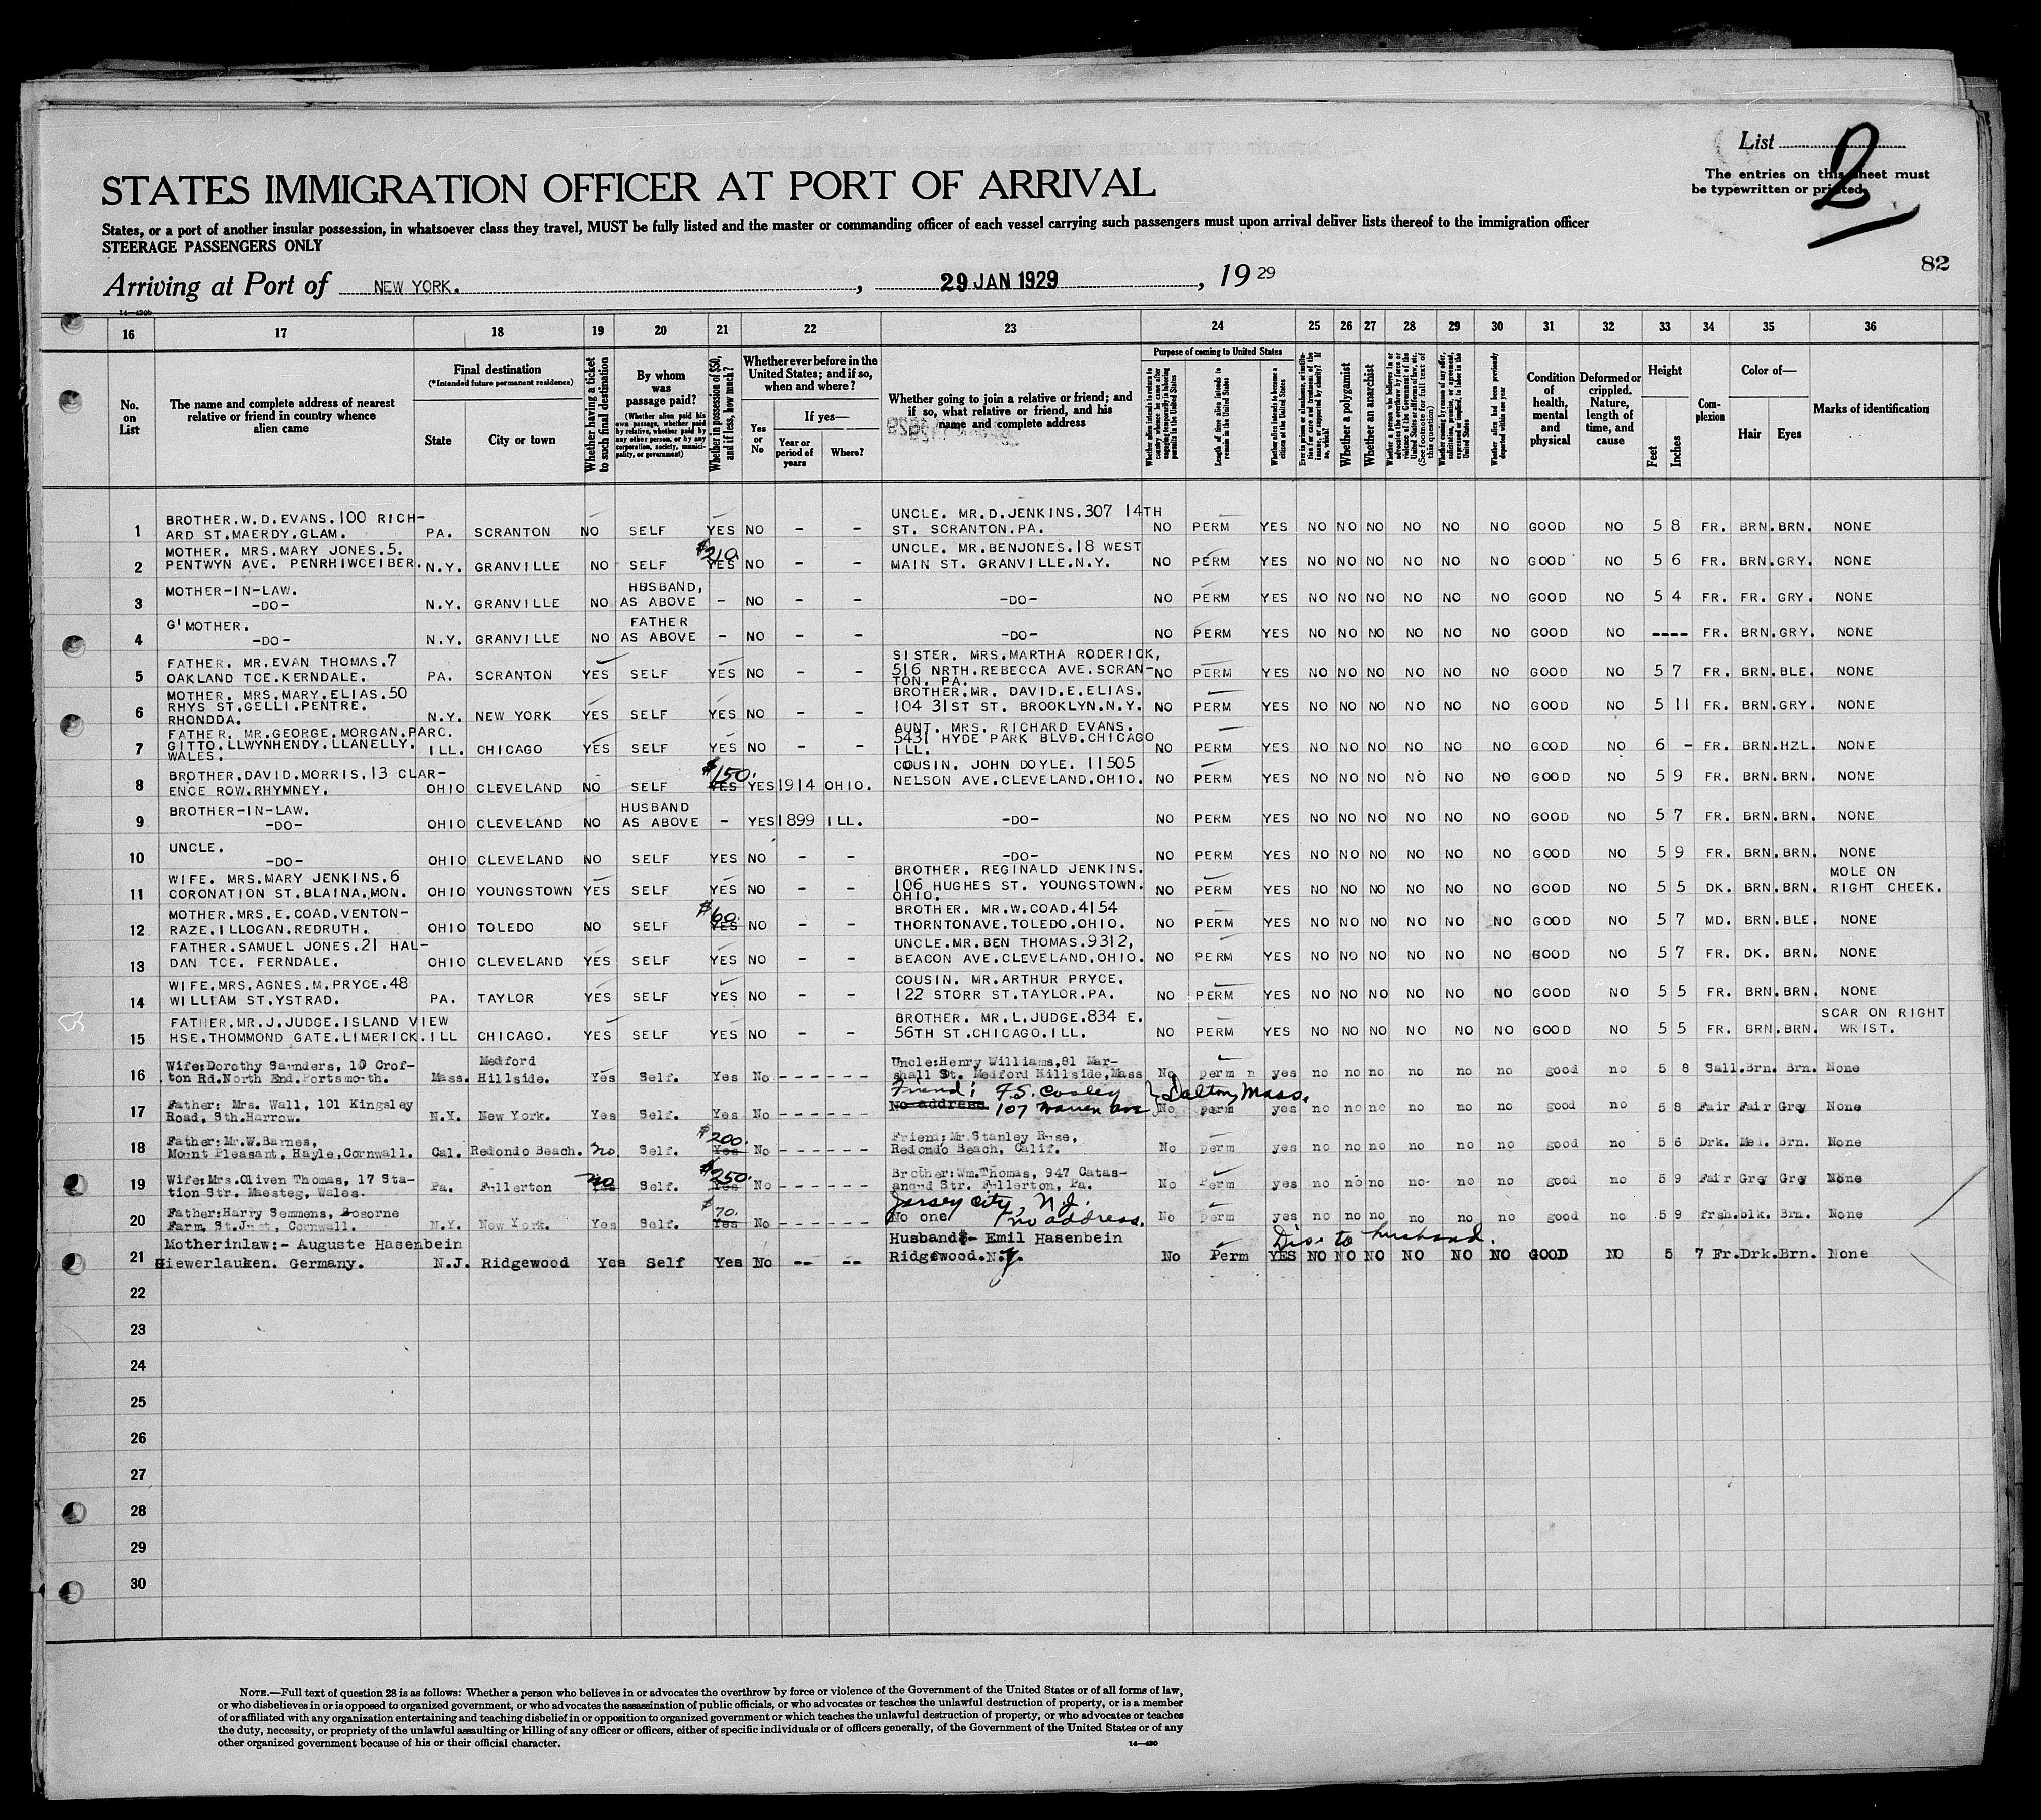 List 2
The entries on this sheet must
be typewritten or printed.
STATES IMMIGRATION OFFICER AT PORT OF ARRIVAL
States, or a port of another insular possession, in whatsoever class they travel, MUST be fully listed and the master or commanding officer of each vessel carrying such passengers must upon arrival deliver lists thereof to the immigration officer
STEERAGE PASSENGERS ONLY
82
Arriving at Port of NEW YORK. , 29 JAN 1929 , 19 29
14—430b
16 17 18 19 20 21 22 23 24 25 26 27 28 29 30 31 32 33 34 35 36
No. on List
The name and complete address of nearest relative or friend in country whence alien came
Final destination
(*Intended future permanent residence)
State
City or town
Whether having a ticket to such final destination
By whom was passage paid?
(Whether alien paid his own passage, whether paid by relative, whether paid by any other person, or by any corporation, society, municipality, or government)
Whether in possession of $50, and if less, how much?
Whether ever before in the United States; and if so, when and where?
Yes or No
If yes—
Year or period of years
Where?
Whether going to join a relative or friend; and if so, what relative or friend, and his name and complete address
Purpose of coming to United States
Whether alien intends to return to country whence he came after engaging temporarily in laboring pursuits in the United States
Length of time alien intends to remain in the United States
Whether alien intends to become a citizen of the United States
Ever in prison or almshouse, or institution for care and treatment of the insane, or supported by charity? If so, which?
Whether a polygamist
Whether an anarchist
Whether a person who believes in or advocates the overthrow by force or violence of the Government of the United States or all forms of law, etc. (See footnote for full text of this question)
Whether coming by reason of any offer, solicitation, promise, or agreement, expressed or implied, to labor in the United States
Whether alien had been previously deported within one year
Condition of health, mental and physical
Deformed or crippled. Nature, length of time, and cause
Height
Feet
Inches
Complexion
Color of—
Hair
Eyes
Marks of identification
1 BROTHER.W.D.EVANS.100 RICH- UNCLE. MR.D.JENKINS.307 14TH
ARD ST.MAERDY.GLAM. PA. SCRANTON NO SELF YES NO - - ST. SCRANTON.PA. NO PERM YES NO NO NO NO NO NO GOOD NO 5 8 FR. BRN. BRN. NONE
2 MOTHER. MRS.MARY JONES.5. $210. UNCLE. MR.BENJONES.18 WEST
PENTWYN AVE. PENRHIWCEIBER. N.Y. GRANVILLE NO SELF YES NO - - MAIN ST. GRANVILLE.N.Y. NO PERM YES NO NO NO NO NO NO GOOD NO 5 6 FR. BRN. GRY. NONE
3 MOTHER-IN-LAW. HUSBAND,
-DO- N.Y. GRANVILLE NO AS ABOVE - NO - - -DO- NO PERM YES NO NO NO NO NO NO GOOD NO 5 4 FR. FR. GRY. NONE
4 G'MOTHER. FATHER
-DO- N.Y. GRANVILLE NO AS ABOVE - NO - - -DO- NO PERM YES NO NO NO NO NO NO GOOD NO ---- FR. BRN. GRY. NONE
5 FATHER. MR.EVAN THOMAS.7 SISTER. MRS.MARTHA RODERICK,
OAKLAND TCE.KERNDALE. PA. SCRANTON YES SELF YES NO - - 516 NRTH.REBECCA AVE.SCRAN- NO PERM YES NO NO NO NO NO NO GOOD NO 5 7 FR. BRN. BLE. NONE
TON. PA.
6 MOTHER. MRS.MARY.ELIAS.50 BROTHER.MR. DAVID.E.ELIAS.
RHYS ST.GELLI.PENTRE. 104 31ST ST. BROOKLYN.N.Y. NO PERM YES NO NO NO NO NO NO GOOD NO 5 11 FR. BRN. GRY. NONE
RHONDDA. N.Y. NEW YORK YES SELF YES NO - -
7 FATHER. MR.GEORGE.MORGAN.PARC. AUNT. MRS. RICHARD EVANS.
GITTO.LLWYNHENDY.LLANELLY. ILL. CHICAGO YES SELF YES NO - - 5431 HYDE PARK BLVD.CHICAGO NO PERM YES NO NO NO NO NO NO GOOD NO 6 - FR. BRN. HZL. NONE
WALES. ILL.
8 BROTHER.DAVID.MORRIS.13 CLAR- $150. COUSIN. JOHN DOYLE. 11505
ENCE ROW.RHYMNEY. OHIO CLEVELAND NO SELF YES YES 1914 OHIO. NELSON AVE.CLEVELAND.OHIO. NO PERM YES NO NO NO NO NO NO GOOD NO 5 9 FR. BRN. BRN. NONE
9 BROTHER-IN-LAW. HUSBAND
-DO- OHIO CLEVELAND NO AS ABOVE - YES 1899 ILL. -DO- NO PERM YES NO NO NO NO NO NO GOOD NO 5 7 FR. BRN. BRN. NONE
10 UNCLE.
-DO- OHIO CLEVELAND NO SELF YES NO - - -DO- NO PERM YES NO NO NO NO NO NO GOOD NO 5 9 FR. BRN. BRN. NONE
11 WIFE. MRS.MARY JENKINS.6 BROTHER. REGINALD JENKINS. MOLE ON
CORONATION ST.BLAINA.MON. OHIO YOUNGSTOWN YES SELF YES NO - - 106 HUGHES ST. YOUNGSTOWN. NO PERM YES NO NO NO NO NO NO GOOD NO 5 5 DK. BRN. BRN. RIGHT CHEEK.
OHIO.
12 MOTHER.MRS.E.COAD.VENTON- $60. BROTHER. MR.W.COAD.4154
RAZE.ILLOGAN.REDRUTH. OHIO TOLEDO NO SELF YES NO - - THORNTONAVE.TOLEDO.OHIO. NO PERM YES NO NO NO NO NO NO GOOD NO 5 7 MD. BRN. BLE. NONE
13 FATHER.SAMUEL JONES.21 HAL- UNCLE.MR.BEN THOMAS.9312,
DAN TCE. FERNDALE. OHIO CLEVELAND YES SELF YES NO - - BEACON AVE.CLEVELAND.OHIO. NO PERM YES NO NO NO NO NO NO GOOD NO 5 7 FR. DK. BRN. NONE
14 WIFE.MRS.AGNES.M.PRYCE.48 COUSIN. MR.ARTHUR PRYCE.
WILLIAM ST.YSTRAD. PA. TAYLOR YES SELF YES NO - - 122 STORR ST.TAYLOR.PA. NO PERM YES NO NO NO NO NO NO GOOD NO 5 5 FR. BRN. BRN. NONE
15 FATHER.MR.J.JUDGE.ISLAND VIEW BROTHER. MR.L.JUDGE.834 E. SCAR ON RIGHT
HSE.THOMMOND GATE.LIMERICK. ILL CHICAGO. YES SELF YES NO - - 56TH ST.CHICAGO.ILL. NO PERM YES NO NO NO NO NO NO GOOD NO 5 5 FR. BRN. BRN. WRIST.
16 Wife:Dorothy Saunders, 10 Crof- Medford Uncle:Henry Williams,81 Mar-
ton Rd.North End.Portsmouth. Mass. Hillside. Yes Self. Yes No ------ shall St. Medford Hillside,Mass No perm n yes no no no no no no good no 5 8 Sall. Brn. Brn. None
17 Father: Mrs. Wall, 101 Kingsley Friend: F.S. Cooley } Dalton, Mass.
Road, Sth.Harrow. N.Y. New York. Yes Self. Yes No ------ No address 107 Warren Ave No perm yes no no no no no no good no 5 8 Fair Fair Grey None
18 Father:Mr.W.Barnes, $200. Friend;Mr.Stanley Ruse,
Mount Pleasant, Hayle,Cornwall. Cal. Redondo Beach. no Self. Yes No ------ Redondo Beach, Calif. No perm yes no no no no no no good no 5 6 Drk. Med. Brn. None
19 Wife:Mrs.Oliven Thomas, 17 Sta- no $250. Brother:Wm.Thomas, 947 Catas-
tion Str. Maesteg, Wales. Pa. Fullerton Yes Self. Yes No ------ anqud Str. Fullerton, Pa. No Perm yes no no no no no no good no 5 9 Fair Grey Grey None
20 Father:Harry Semmens, Bosorne $70. Jersey City, N.J.
Farm, St.Just, Cornwall. N.Y. New York. Yes Self. Yes No ------ No one no address. No perm yes no no no no no no good no 5 9 frsh. blk. Brn. None
21 Motherinlaw:- Auguste Hasenbein Husband:- Emil Hasenbein Dis. to husband.
Hiewerlauken. Germany. N.J. Ridgewood Yes Self Yes No -- -- Ridgewood.N.J. No Perm YES NO NO NO NO NO NO GOOD NO 5 7 Fr. Drk. Brn. None
22
23
24
25
26
27
28
29
30
NOTE.—Full text of question 28 is as follows: Whether a person who believes in or advocates the overthrow by force or violence of the Government of the United States or of all forms of law,
or who disbelieves in or is opposed to organized government, or who advocates the assassination of public officials, or who advocates or teaches the unlawful destruction of property, or is a member
of or affiliated with any organization entertaining and teaching disbelief in or opposition to organized government or which teaches the unlawful destruction of property, or who advocates or teaches
the duty, necessity, or propriety of the unlawful assaulting or killing of any officer or officers, either of specific individuals or of officers generally, of the Government of the United States or of any
other organized government because of his or their official character.
14—430